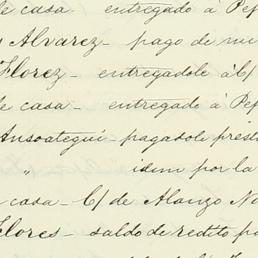 de casa. entregado á Pep
y Alvarez - pago de nue
Florez - entregadole á C/
de casa - entregado á Pep
Ansoategui - pagadole prest
" idem por la
casa - C/ de Alonzo No
Flores - saldo de redito po